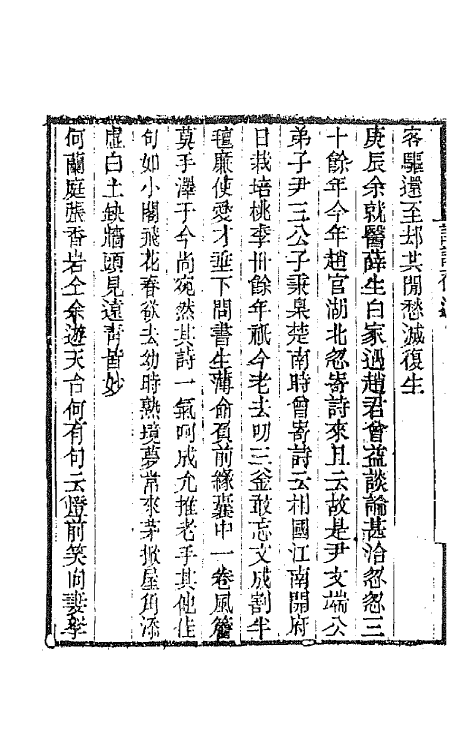 客驅還至却共閒愁滅復生
庚辰余就醫薛生白家遇趙君曾益談論甚洽忽忽三
十餘年今年趙官湖北忽寄詩來且云故是尹文端公
弟子尹三公子秉臬楚南時曾寄詩云相國江南開府
日栽培桃李卅餘年祇今老去叨三釜敢忘文成割半
氊廉使愛才垂下問書生薄命負前緣囊中一卷風簷
莫手澤于今尚宛然其詩一氣呵成允推老手其他佳
句如小閣飛花春欲去幼時熟境夢常來茅掀屋角添
虛白土缺牆頭見遠青皆妙
何蘭庭張香岩仝余遊天台何有句云燈前笑向妻孥